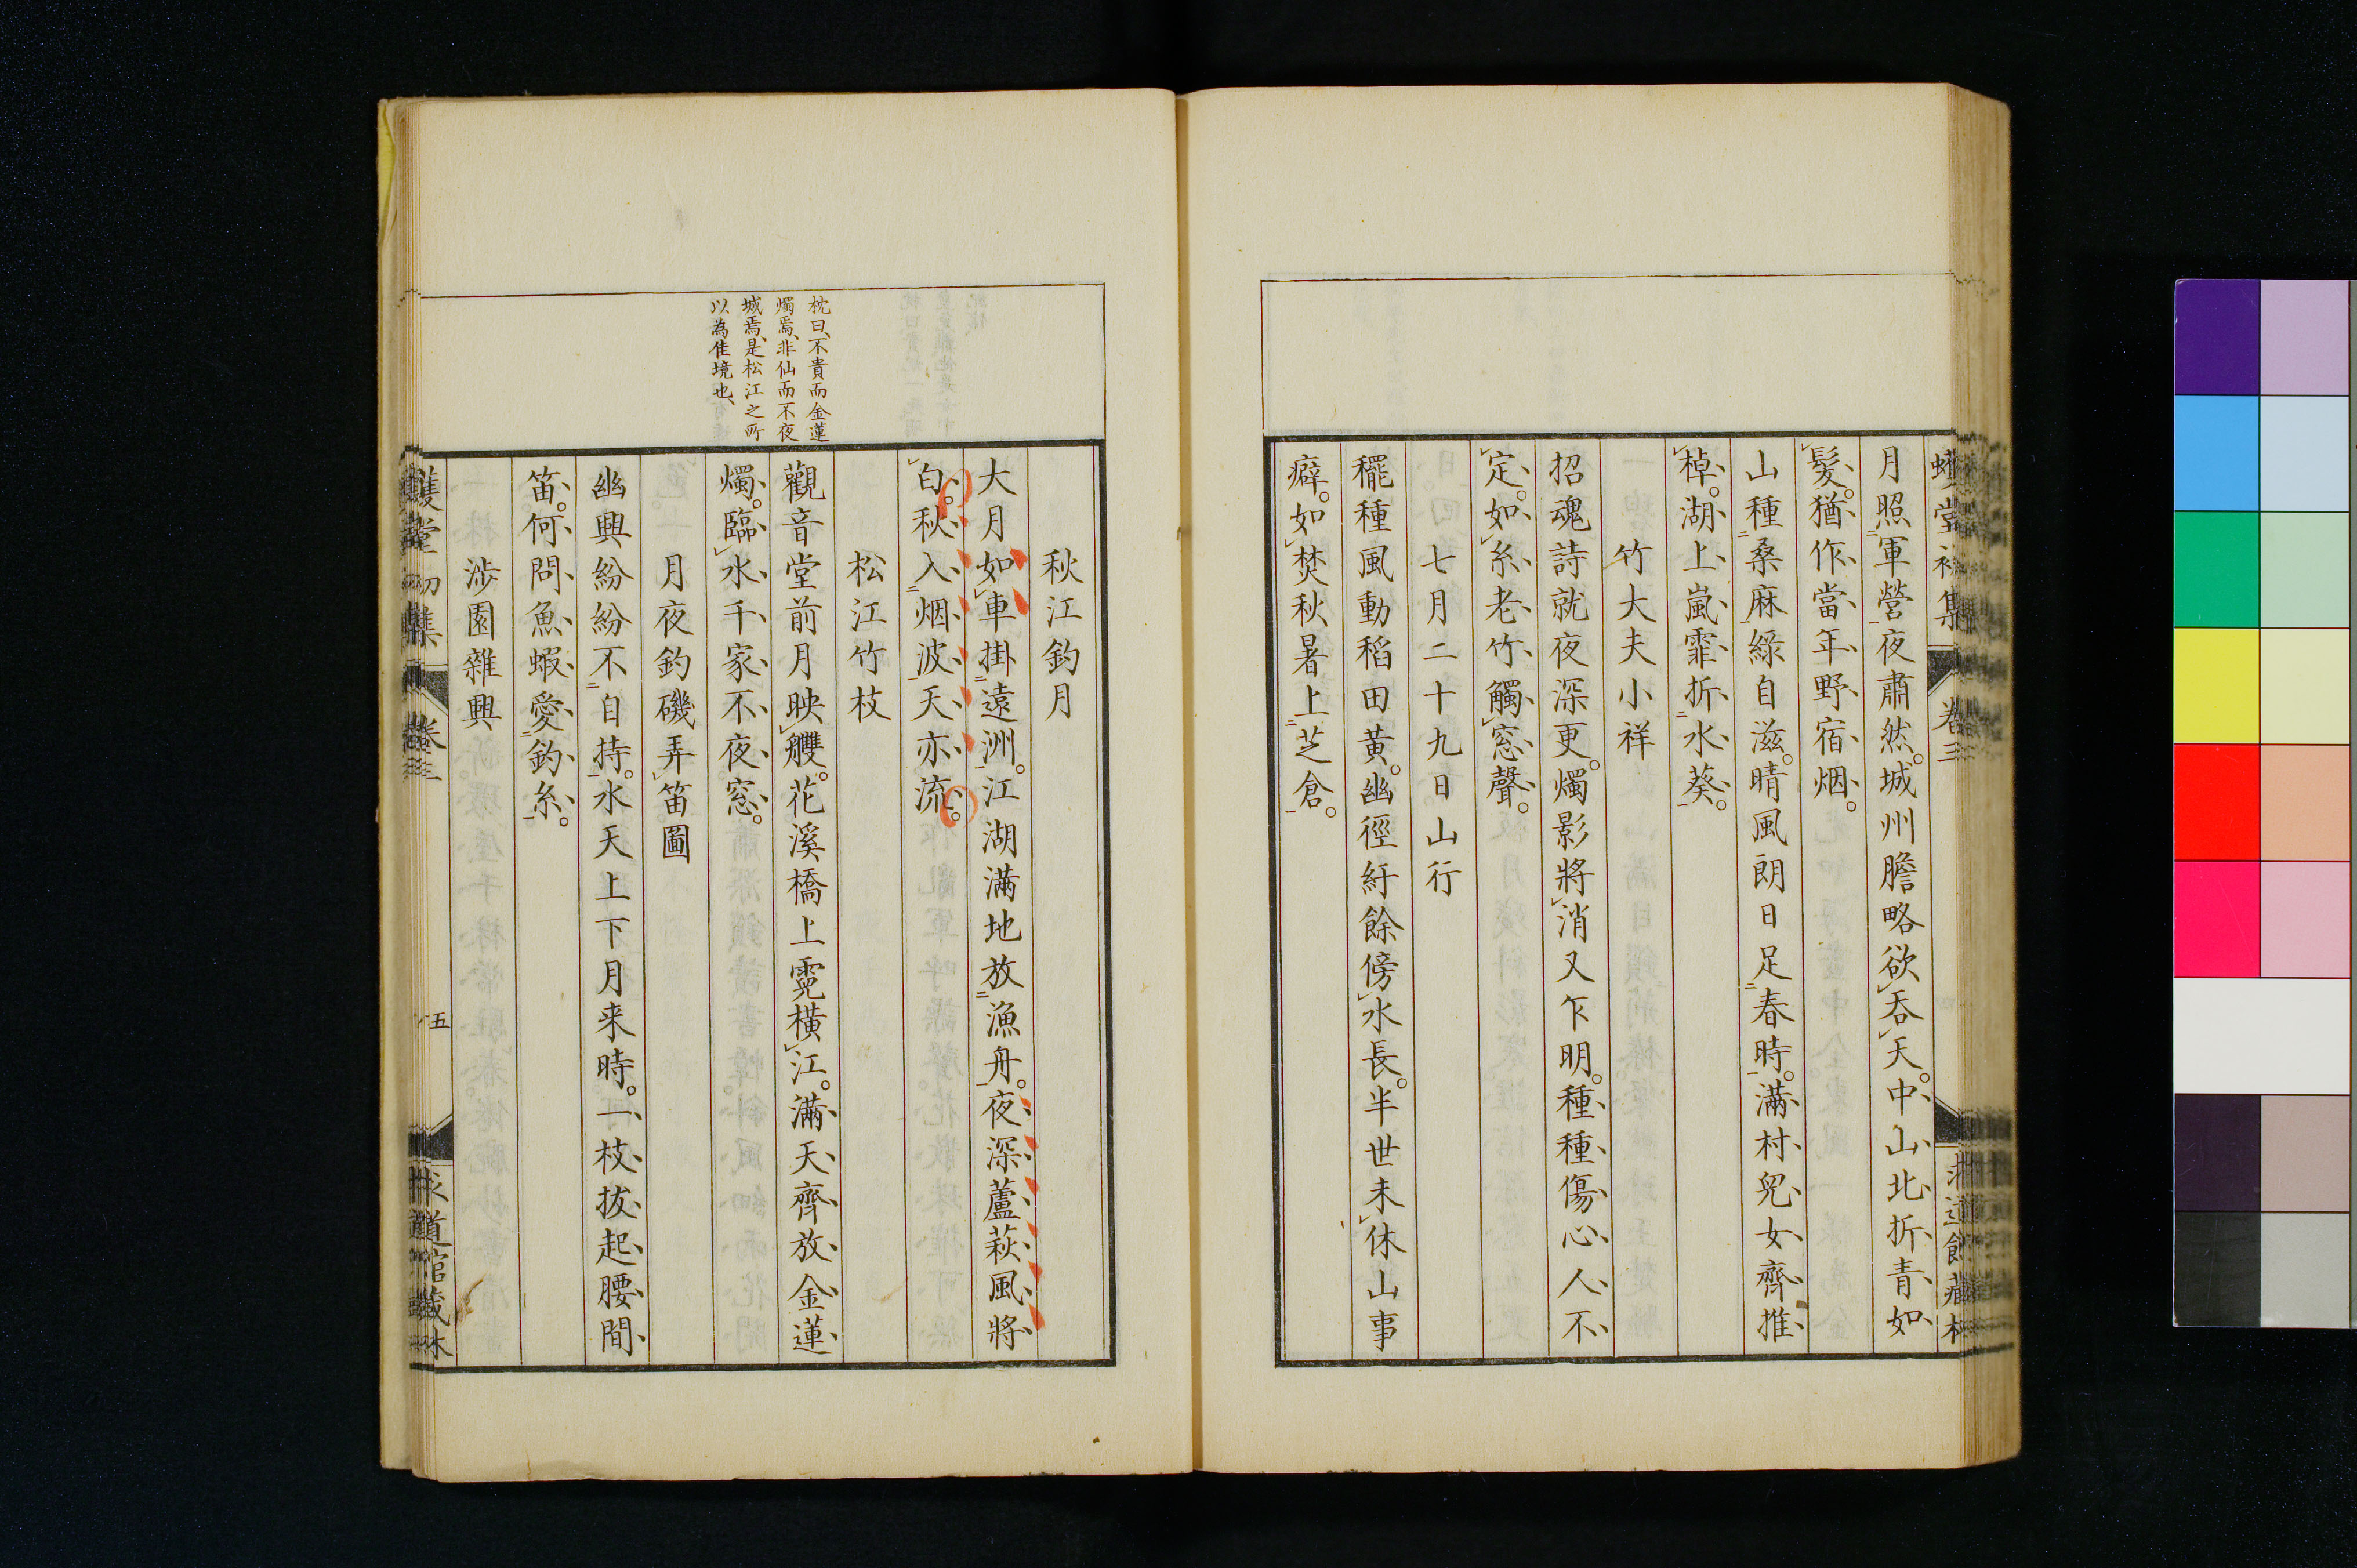 月照軍營夜肅然。城州膽略欲吞天。中山北折青如
髮。猶作當年野宿烟。
山種桑麻綠自滋。晴風朗日足春時。滿村兒女齊推
棹。湖上嵐霏折水葵。
竹大夫小祥
招魂詩就夜深更。燭影將消又乍明。種種傷心人不
定。如糸老竹觸窓聲。
七月二十九日山行
䆉種風動稻田黃。幽徑紆餘傍水長。半世未休山事
癖。如焚秋暑上芝倉。
秋江釣月
大月如車掛遠洲。江湖滿地放漁舟。夜深蘆萩風將
白。秋入烟波天亦流。
松江竹枝
枕曰、不貴而金蓮
燭焉、非仙而不夜
城焉、是松江之所
以為佳境也、
觀音堂前月映艭。花溪橋上霓橫江。滿天齊放金蓮
燭。臨水千家不夜窓。
月夜釣磯弄笛圖
幽興紛紛不自持。水天上下月来時。一枝拔起腰間
笛。何問魚蝦愛釣糸。
涉園雜興
堂初集
卷三
五
道館藏